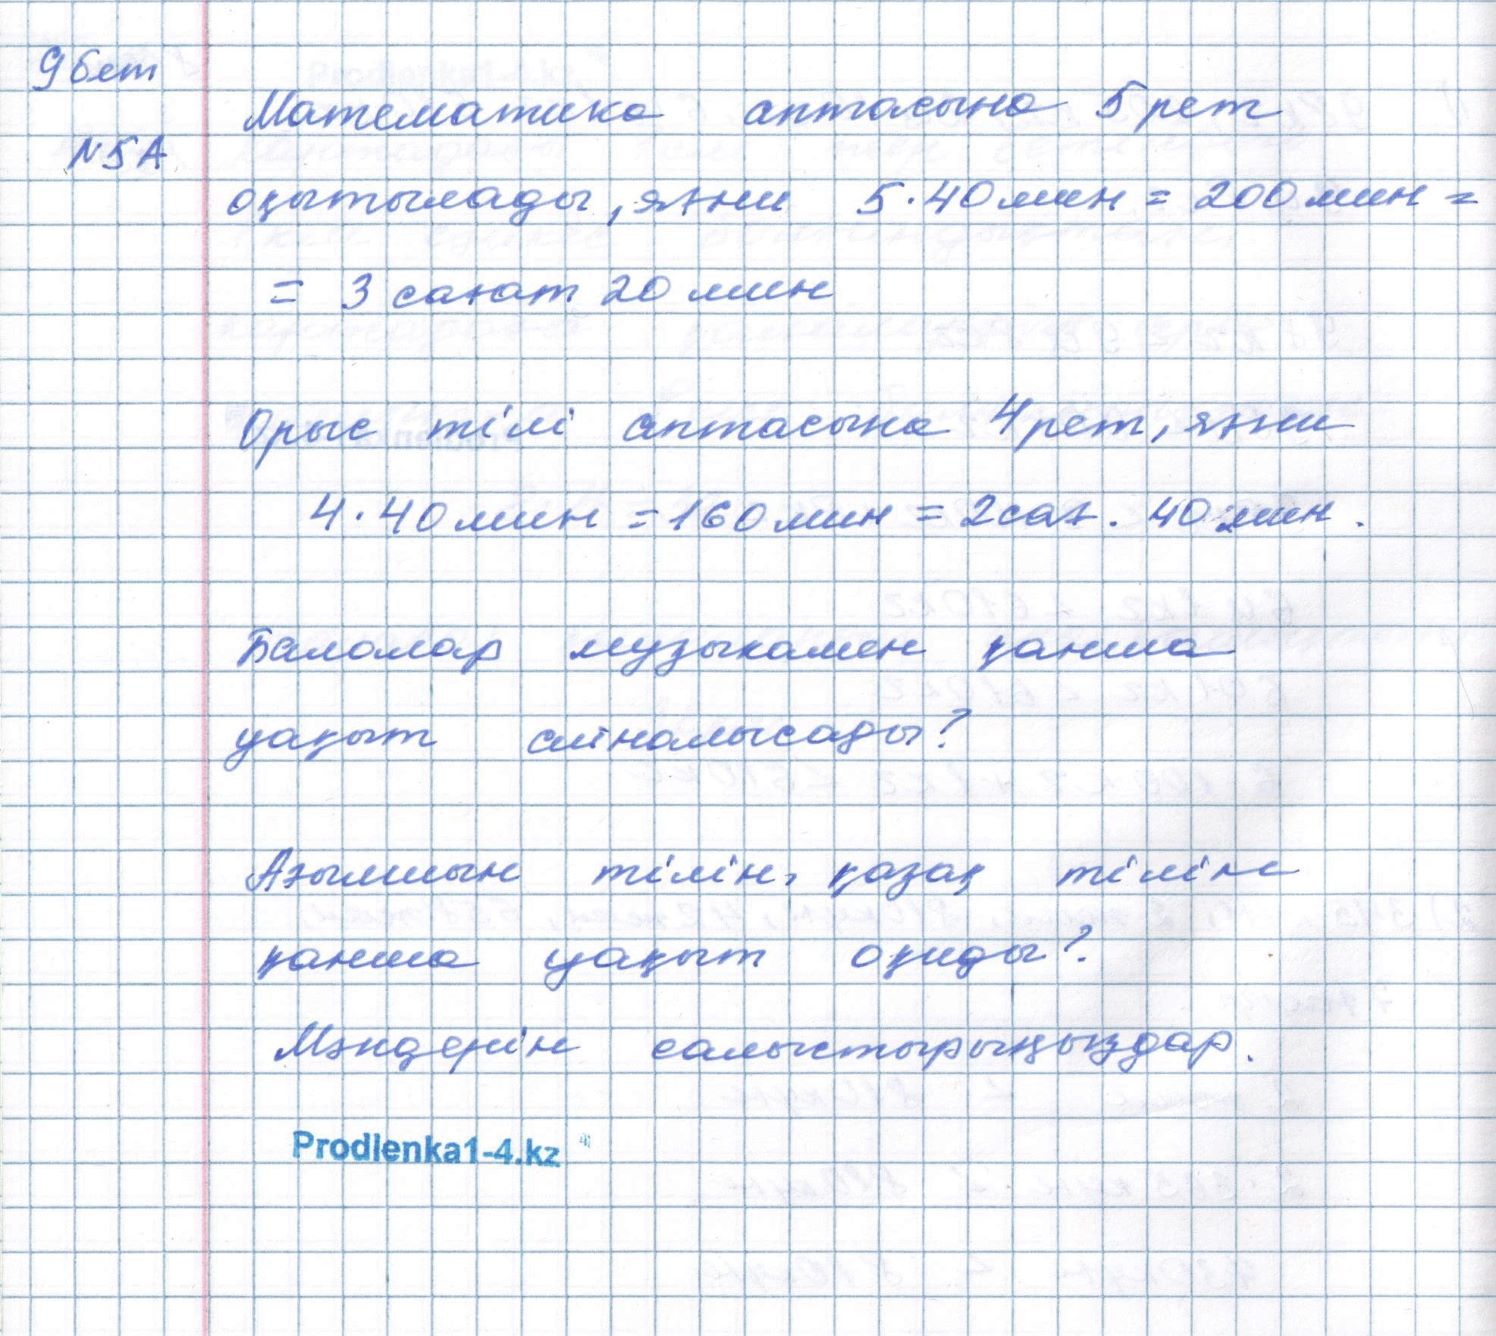 9 бет
Математика аптасына 5 рет
№5А
оқытылады, яғни 5·40 мин = 200 мин =
= 3 сағат 20 мин
Орыс тілі аптасына 4 рет, яғни
4·40 мин = 160 мин = 2 сағ. 40 мин.
Балалар музыкамен қанша
уақыт айналысады?
Ағылшын тілін, қазақ тілін
қанша уақыт оқиды?
Мәндерін салыстырыңыздар.
Prodlenka1-4.kz